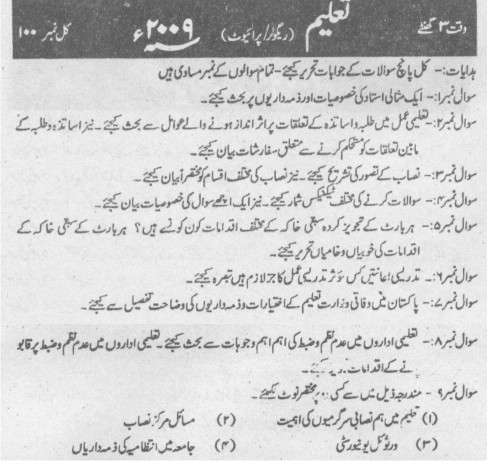 وقت ۳ گھنٹے تعلیم (ریگولر/پرائیوٹ) سنہ ۲۰۰۹ء کل نمبر ۱۰۰
ہدایات:- کل پانچ سوالات کے جوابات تحریر کیجئے- تمام سوالوں کے نمبر مساوی ہیں
سوال نمبر۱:- ایک مثالی استاد کی خصوصیات اور ذمہ داریوں پر بحث کیجئے۔
سوال نمبر۲:- تعلیمی عمل میں طلبہ و اساتذہ کے تعلقات پر اثر انداز ہونے والے عوامل سے بحث کیجئے۔ نیز اساتذہ و طلبہ کے
مابین تعلقات کو مستحکم کرنے سے متعلق سفارشات بیان کیجئے۔
سوال نمبر۳:- نصاب کے تصور کی تشریح کیجئے۔ نیز نصاب کی مختلف اقسام کو مختصراً بیان کیجئے۔
سوال نمبر۴:- سوالات کرنے کی مختلف ٹیکنیکس شمار کیجئے۔ نیز ایک اچھے سوال کی خصوصیات بیان کیجئے۔
سوال نمبر۵:- ہربارٹ کے تجویز کردہ سبقی خاکہ کے مختلف اقدامات کون کونسے ہیں؟ ہربارٹ کے سبقی خاکہ کے
اقدامات کی خوبیاں و خامیاں تحریر کیجئے۔
سوال نمبر۶:- تدریسی اعانتیں کس مؤثر تدریسی عمل کا جز لازم ہیں تبصرہ کیجئے۔
سوال نمبر۷:- پاکستان میں وفاقی وزارت تعلیم کے اختیارات و ذمہ داریوں کی وضاحت تفصیل سے کیجئے۔
سوال نمبر۸:- تعلیمی اداروں میں عدم نظم و ضبط کی اہم اہم وجوہات سے بحث کیجئے۔ تعلیمی اداروں میں عدم نظم و ضبط پر قابو
پانے کے اقدامات کیجئے۔
سوال نمبر۹- مندرجہ ذیل میں سے کسی دو پر مختصر نوٹ لکھئے۔
(۱) تعلیم میں ہم نصابی سرگرمیوں کی اہمیت (۲) مسائل مرکز نصاب
(۳) ورچوئل یونیورسٹی (۴) جامعہ میں انتظامیہ کی ذمہ داریاں